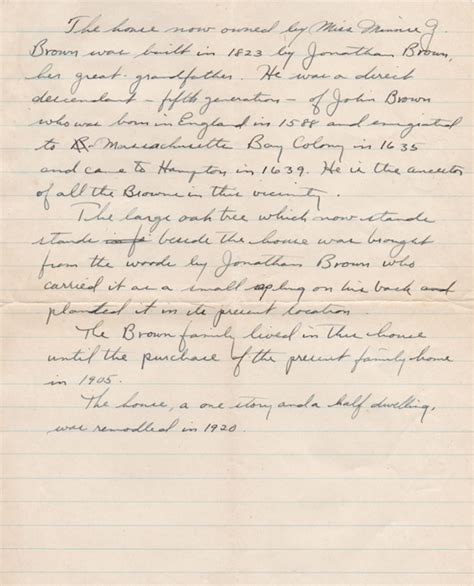 The house now owned by Miss Minnie G.
Brown was built in 1823 by Jonathan Brown,
her great-grandfather. He was a direct
descendant - fifth generation - of John Brown
who was born in England in 1588 and emigrated
to Massachusetts Bay Colony in 1635
and came to Hampton in 1639. He is the ancestor
of all the Browns in this vicinity.
The large oak tree which now stands
stands beside the house was bought
from the woods by Jonathan Brown who
carried it as a small sapling on his back and
planted it in its present location.
The Brown family lived in this house
until the purchase of the present family home
in 1905.
The house, a one story and a half dwelling,
was remodled in 1920.